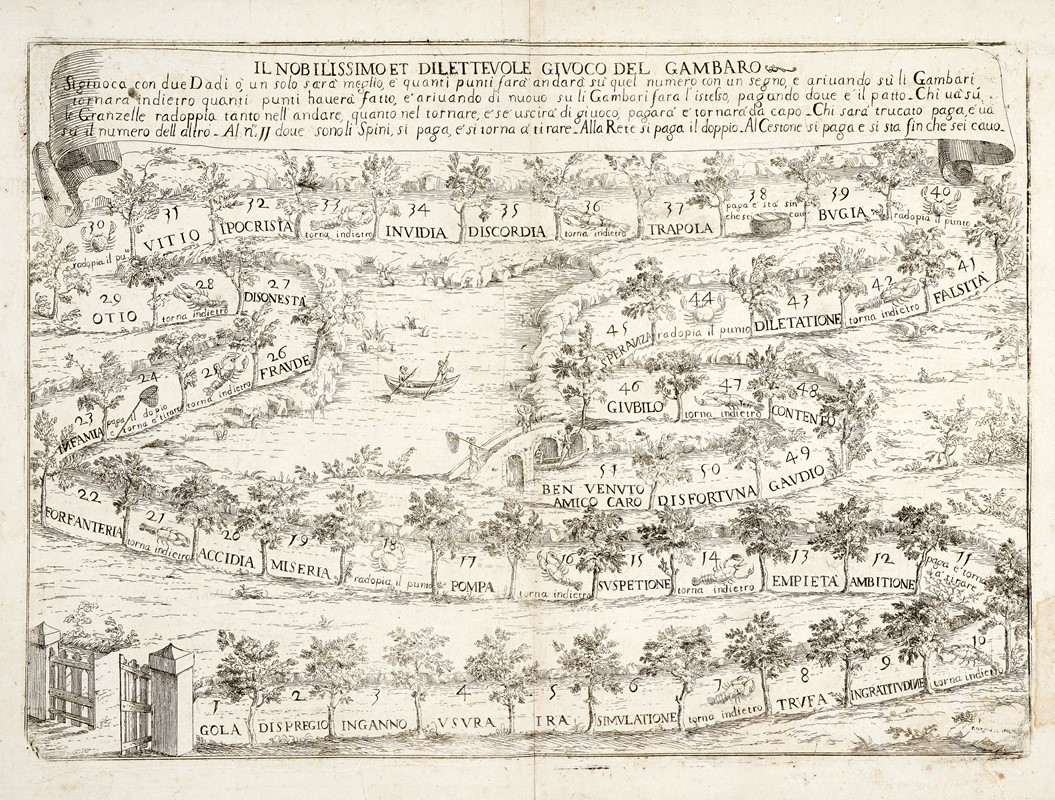 IL NOBILISSIMO ET DILETTEVOLE GIVOCO DEL GAMBARO
Si gioca con due Dadi ò, un solo sarà meglio, e quanti punti farà andarà sù quel numero con un segno, e ariuando sù li Gambari
tornarà indietro quanti punti hauerà fatto, e ariuando di nuouo su li Gambari farà l'istesso, pagando doue è il patto - Chi uà sù,
le Granzelle radoppia tanto nell andare, quanto nel tornare, e se uscirà di giuoco, pagarà e tornarà da capo - Chi sarà trucato paga, e uà
sù il numero dell altro - Al n.º 11 doue sono li Spini, si paga, e si torna à tirare - Alla Rete si paga il doppio - Al Cestone si paga e si sta fin che sei cauo -
30 radopia il pu
31 VITIO
32 IPOCRISTA
33 torna indietro
34 INVIDIA
35 DISCORDIA
36 torna indietro
37 TRAPOLA
38 paga e sta sin
che sei cau
39 BVGIA
40 radopia il punto
29 OTIO
28 torna indietro
27 DISONESTÀ
45 SPERANZA
44 radopia il punto
43 DILETATIONE
42 torna indietro
41 FALSITÀ
23 INFAMIA
24 paga il dopio
e torna e tirare
25 torna indietro
26 FRAVDE
46 GIVBILO
47 torna indietro
48 CONTENTO
51 BEN VENVTO
AMICO CARO
50 DISFORTVNA
49 GAVDIO
22 FORFANTERIA
21 torna indietro
20 ACCIDIA
19 MISERIA
18 radopia il punto
17 POMPA
16 torna indietro
15 SVSPETIONE
14 torna indietro
13 EMPIETÀ
12 AMBITIONE
11 paga e torna
à tirare
1 GOLA
2 DISPREGIO
3 INGANNO
4 VSVRA
5 IRA
6 SIMVLATIONE
7 torna indietro
8 TRVFA
9 INGRATITVDINE
10 torna indietro